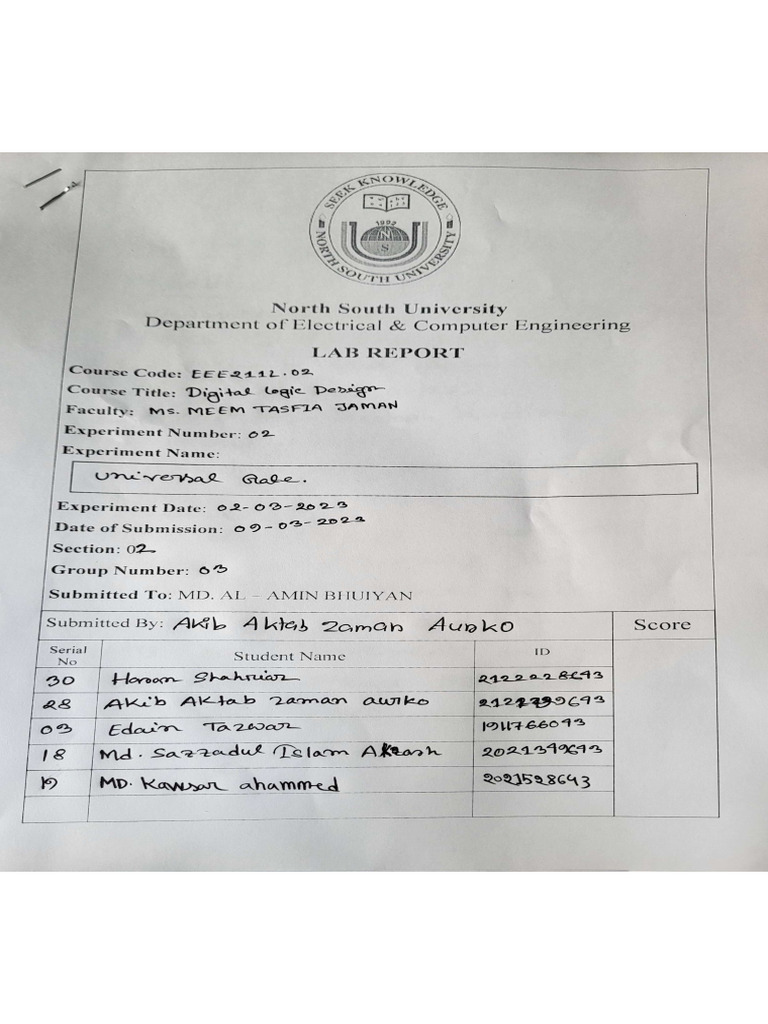 SEEK KNOWLEDGE
1992
N
S
NORTH SOUTH UNIVERSITY
North South University
Department of Electrical & Computer Engineering
LAB REPORT
Course Code: EEE211L.02
Course Title: Digital Logic Design
Faculty: MS. MEEM TASFIA JAMAN
Experiment Number: 02
Experiment Name:
Universal Gate.
Experiment Date: 02-03-2023
Date of Submission: 09-03-2023
Section: 02
Group Number: 03
Submitted To: MD. AL – AMIN BHUIYAN
Submitted By: Akib Aktab Zaman Aunko Score
Serial No Student Name ID
30 Hasan Shahriar 2122228643
28 Akib Aktab Zaman auriko
03 Edain Tazwar 1911766043
18 Md. Sazzadul Islam 2021349643
19 MD. Kawsar ahammed 2021528643